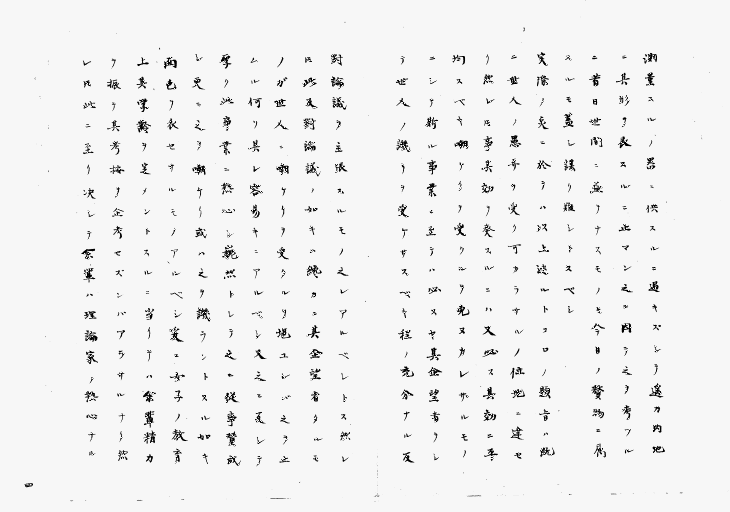 測量スルノ器ニ供スルニ過キズシテ遠カ内地
ニ其形ヲ表スルニ止マン之ニ因テ之ヲ考フル
ニ昔日世間ニ無リナスモノモ今日ノ贅物ニ属
スルモ蓋シ譲リ難シトスベシ
実際ノ点ニ於テハ以上述ルトコロノ類旨ハ既
ニ世人ノ愚弄ヲ受ク可カラサルノ位地ニ達セ
リ然レ氏事其効ヲ発スルニハ又必ス其効ニ準
均スベキ嘲ケリヲ受クルヲ免ヌカレザルモノ
ニシテ斯ル事業ニ至テハ必スヤ其企望者タレ
テ世人ノ譏リヲ受ケサスベキ程ノ充分ナル反
対論議ヲ主張スルモノ之レアルベシトス然レ
氏此反対論議ノ如キハ纔カニ其企望者タルモ
ノガ世人ニ嘲ケリヲ受クルヲ堪エシバ之ヲ止
ムル何ソ其レ容易キニアルベシ又之ニ反シテ
厚ク此事業ニ熱心シ巍然トシテ之ニ従事賛成
シ更ニ之ヲ嘲ケリ或ハ之ヲ譏ラントスル如キ
両色ヲ表セサルモノアルベシ爰ニ女子ノ教育
上其学齢ヲ定メントスルニ当リテハ余輩精力
ヲ振テ其考按ヲ企考セズンバアラサルナリ然
レ氏此ニ至リ決シテ余輩ハ理論家ノ熱心ナル